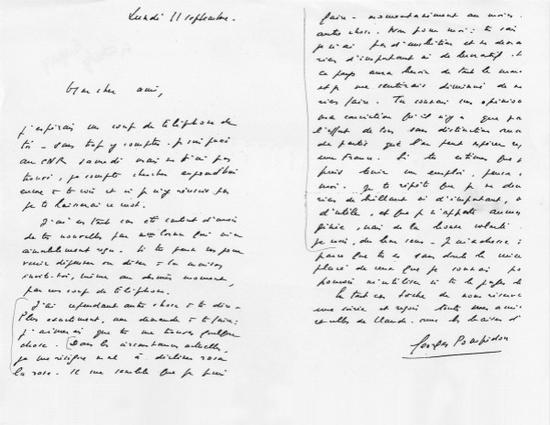 Lundi 11 septembre.
Mon cher ami,
J'espérais un coup de téléphone de
toi - sans trop y compter. Je suis passé
au CNR samedi mais ne t'ai pas
trouvé, je compte chercher aujourd'hui
encore à te voir et si je n'y réussis pas
je te laisserai ce mot.
J'ai en tout cas été content d'avoir
de tes nouvelles par
aimablement reçu. Si tu peux un jour
venir déjeuner ou dîner à la maison
invite-toi, même au dernier moment,
par un coup de téléphone.
J'ai cependant autre chose à te dire.
Plus exactement, une demande à te faire:
j'aimerais que tu me trouves quelque
chose. Dans les circonstances actuelles,
je me résigne mal à décliner rosa
la rose. Il me semble que je puis
faire - momentanément au moins -
autre chose. Non pour moi: tu sais
que je n'ai pas d'ambition et ne demande
rien d'important ni de lucratif. Mais
ce pays aura besoin de tout le monde
et je me sentirais diminué de ne
rien faire. Tu connais mes opinions
ma conviction qu'il n'y a que par
l'effort de tous sans distinction
de partis que l'on peut espérer
une France. Si tu estimes que je
puis tenir un emploi, pense à
moi. Je te répète que je ne demande
rien de brillant ni d'important, mais
d'utile, et que je n'apporte aucun
génie, mais de la bonne volonté
je crois, du bon sens. Je m'adresse à toi
parce que tu es sans doute le mieux
placé de ceux que je connais pour
pouvoir m'utiliser si tu le juges bon.
En tout cas tâche de nous réserver
une soirée et reçois toutes mes amitiés
et celles de Claude, avec les baisers d'
Georges Pompidou